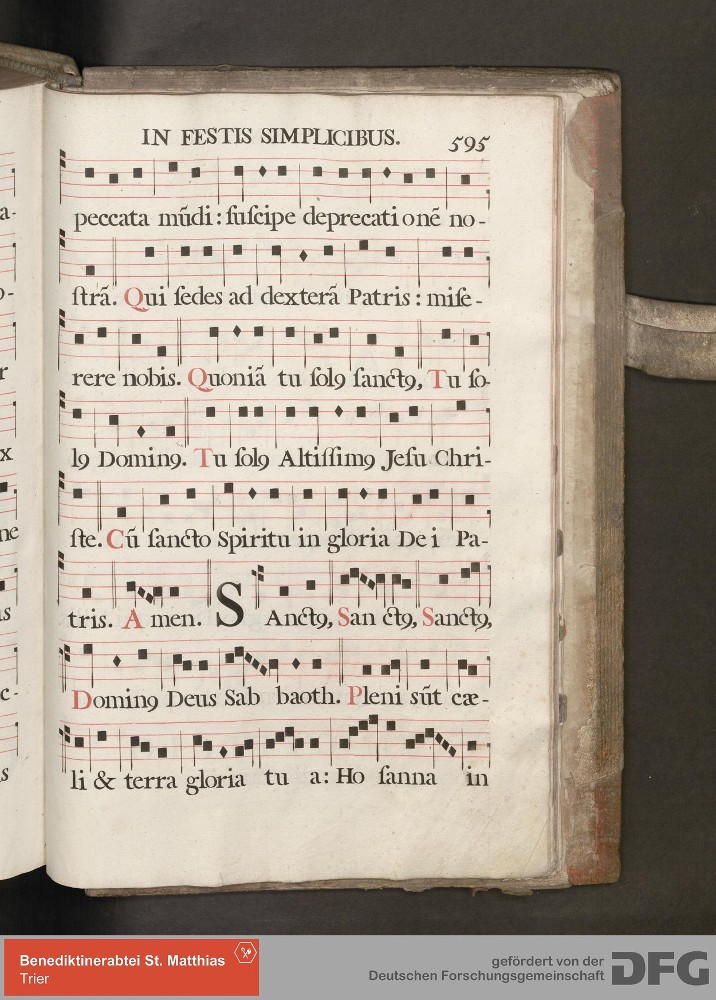 IN FESTIS SIMPLICIBUS. 595
peccata mũdi : ſuſcipe deprecationẽ no-
ſtrã. Qui ſedes ad dexterã Patris : miſe-
rere nobis. Quoniã tu ſolꝰ ſanctꝰ, Tu ſo-
lꝰ Dominꝰ. Tu ſolꝰ Altiſſimꝰ Jeſu Chri-
ſte. Cũ ſancto Spiritu in gloria Dei Pa-
tris. A men. S Anctꝰ, San ctꝰ, Sanctꝰ,
Dominꝰ Deus Sab baoth. Pleni sũt cæ-
li & terra gloria tu a: Ho ſanna in
a-
o-
r
x
ne
is
c-
s
Benediktinerabtei St. Matthias
Trier
gefördert von der
Deutschen Forschungsgemeinschaft
DFG